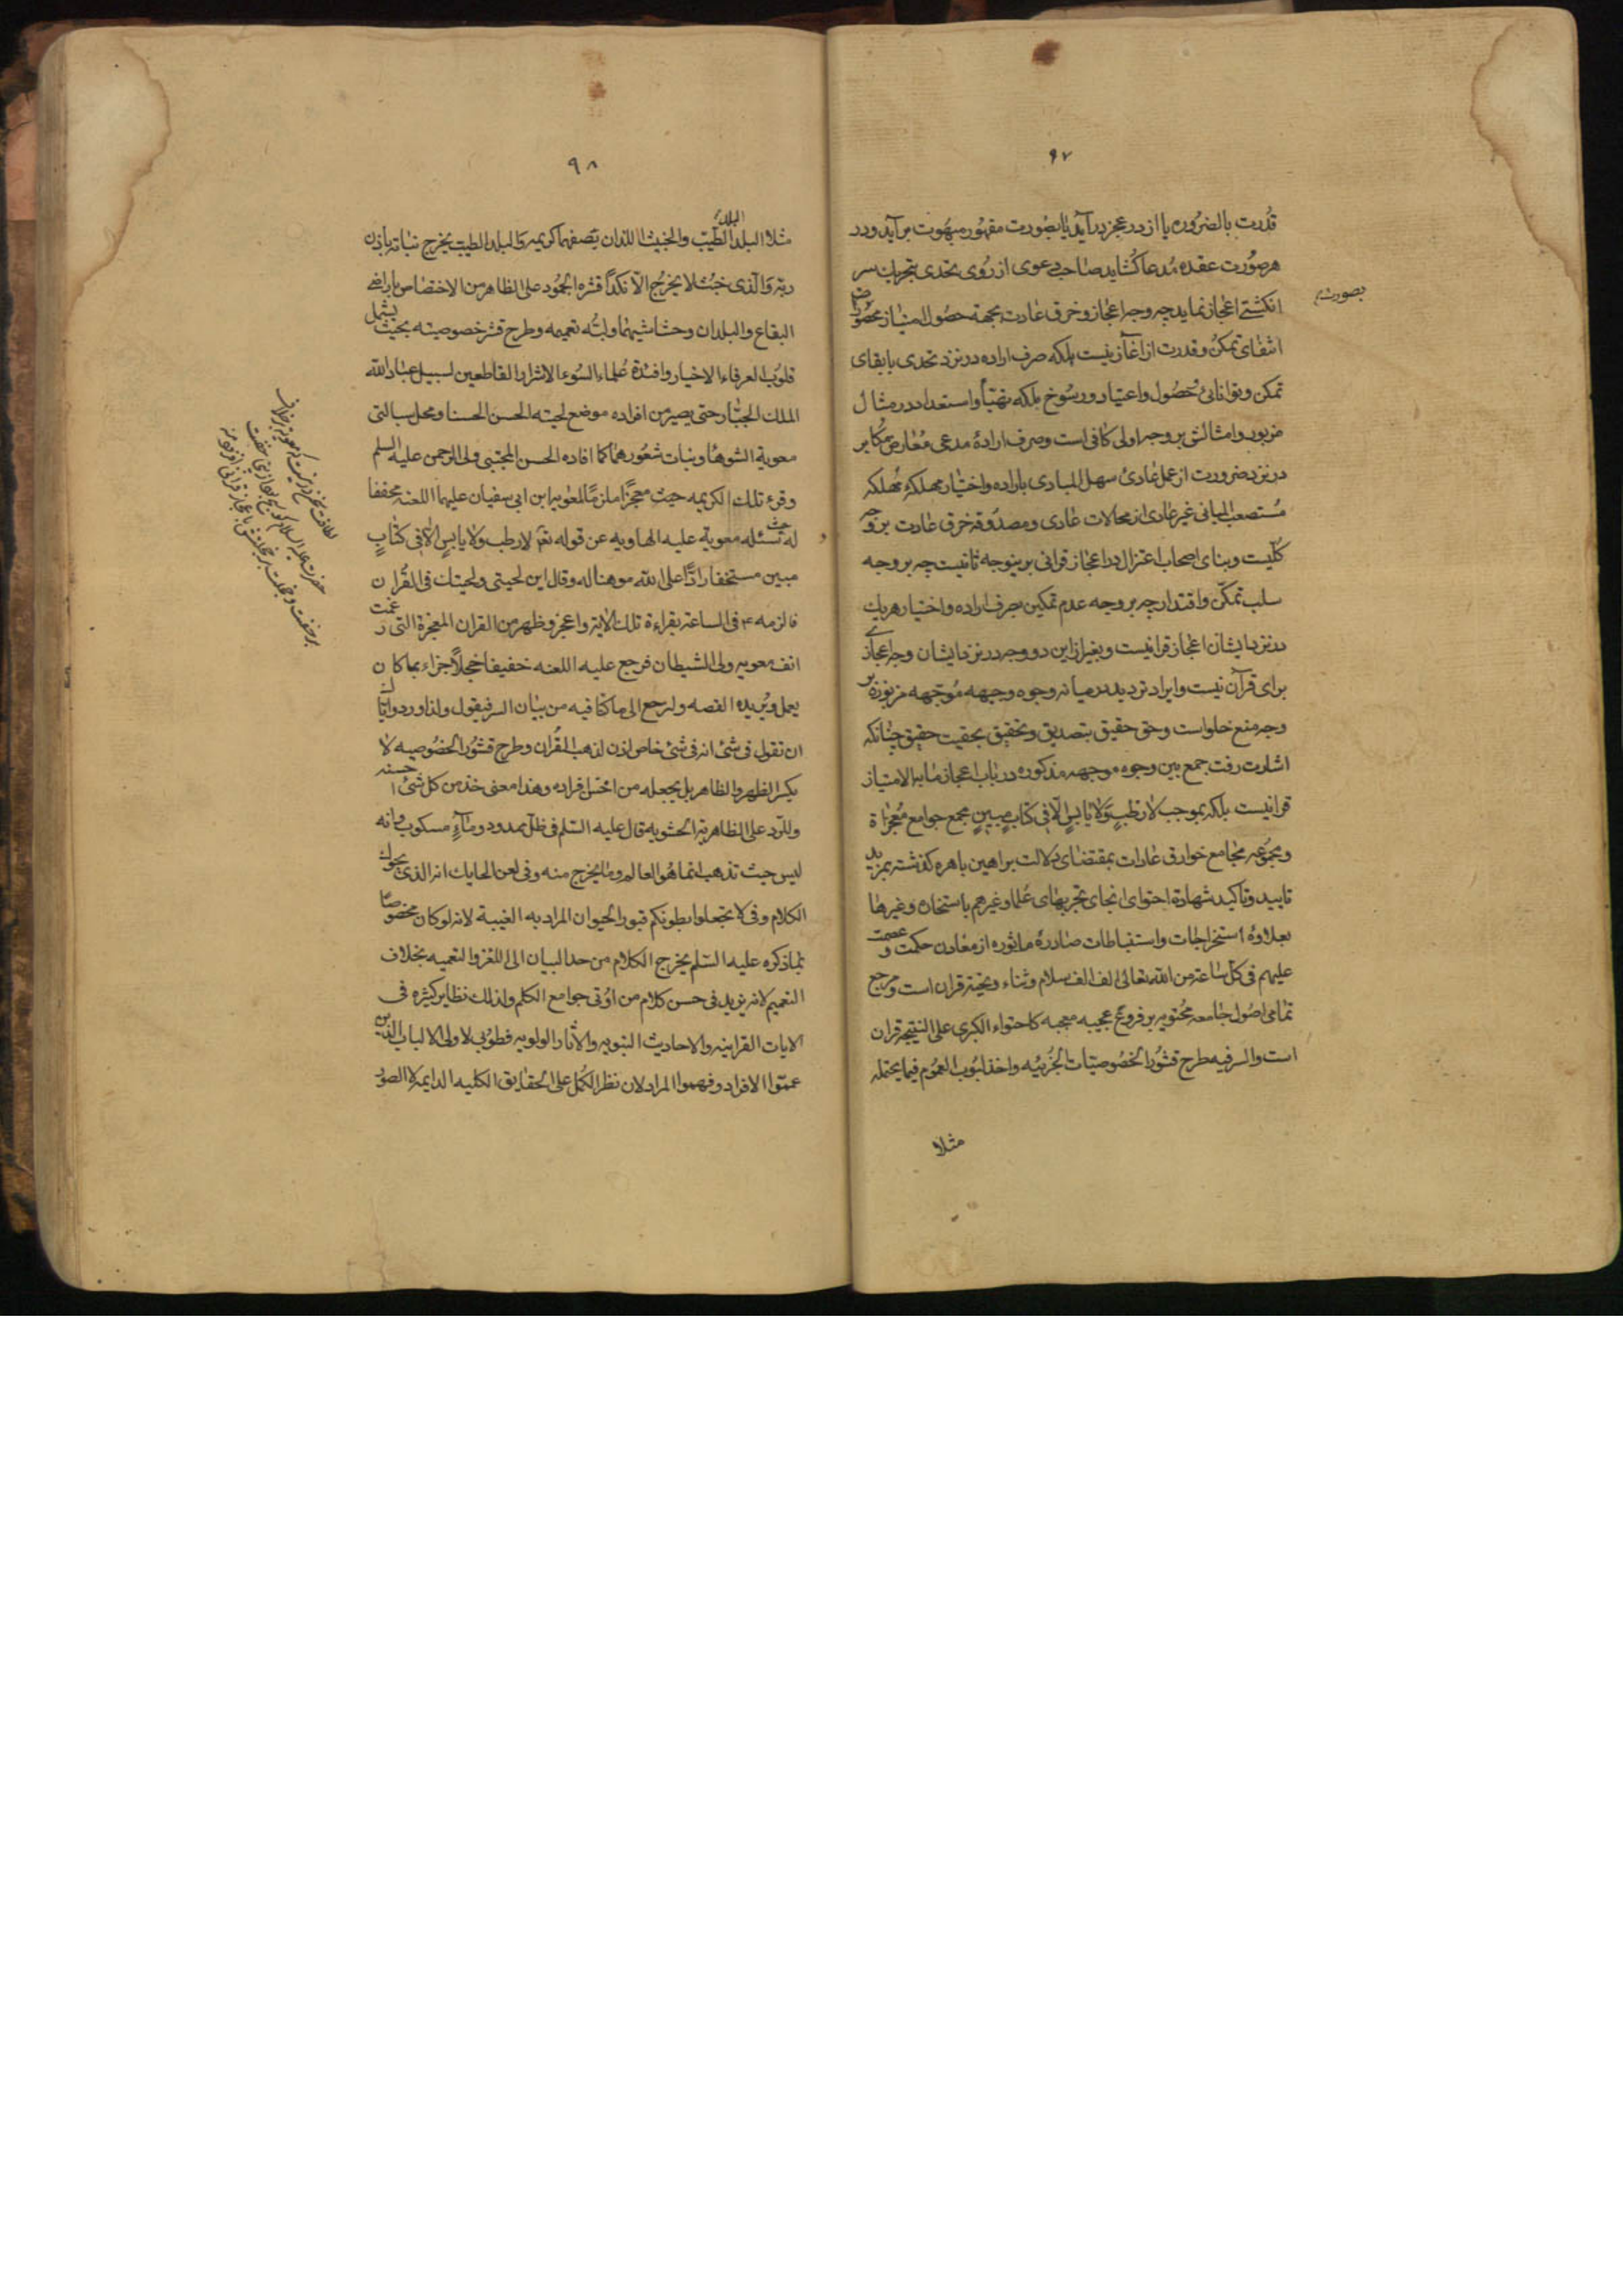 ۹۷
قدرت بالضروره یا از در عجز درآید یا بصورت مقهور مبهوت برآید و در
هر صورت عقده مدعا کشاید صاحب دعوی از روی تحدی بتحریک سر
انکشتی اعجاز نماید چه وجه اعجاز و خرق عادت بجهة حصول امتیاز محصور
بصورت
انتفای تمکن و قدرت از اغآز نیست بلکه صرف اراده در نزد تحدی با بقای
تمکن و توانائی حصول و اعتیاد و رسوخ ملکه تهیأ و استعداد در مثال
مزبور و امثالش بر وجه اولی کافی است و صرف ارادهٔ مدعی معارض مکابر
در نزد ضرورت از عمل عادی سهل المبادی باراده و اختیار مهلکهٔ تهلکه
مستصعب المبانی غیر عادی از محالات عادی و مصدوقه خرق عادت بر وجه
کلیت و بنای اصحاب اعتزال در اعجاز قرانی برینوجه ثانیست چه بر وجه
سلب تمکن و اقتدار چه بر وجه عدم تمکین بصرف اراده و اختیار هر یک
در نزد ایشان اعجاز قرانیست و بغیر از این دو وجه در نزد ایشان وجه اعجازی
برای قرآن نیست و ایراد تردید در میانه وجوه وجیهه موجهه مزبوره بر
وجه منع خلو است و حق حقیق بتصدیق و تحقیق بحقیت حقیق چنانکه
اشارت رفت جمع بین وجوه موجهه مذکوره در باب اعجاز مابه الامتیاز
قرانیست بلکه بموجب لا رطب ولا یابس الا فی کتاب مبین مجمع جوامع معجزاة
و مجموعه مجامع خوارق عادات بمقتضای دلالت براهین باهره کذشته بمزید
تایید و تاکید شهادة احتوای انجای تجربهای علما و غیرهم باستخاره و غیرها
بعلاوه استخراجات و استنباطات صادرهٔ ماثوره از معادن حکمت و عصمت
علیهم فی کل ساعة من الله تعالی الف الف سلام و ثناء و تحیة قران است و مرجع
تمامی اصول جامعه محتویه بر فروع عجیبه معجبه کاحتواء الکبری علی النتیجه قران
است والسر فیه طرح قشور الخصوصیات الجزئیه و اخذ لبوب العموم فیما یحتمله
مثلا
۹۸
مثلا البلد الطیب والخبیث اللذان تصفهما کریمه والبلد الطیب یخرج نباته باذن
البلد
ربه والذی خبث لا یخرج الا نکداً قشره الجمود علی الظاهر من الاختصاص باراضی
البقاع والبلدان وحشاشیهما ولبه تعمیمه وطرح قشر خصوصیته بحیث یشمل
قلوب العرفاء الاخیار وافئدة علماء السوء الاشرار القاطعین لسبیل عباد الله
الملک الجبار حتی یصیر من افراده موضع لحیته الحسن الحسنا ومحل سبالتی
معویة الشوهاء ونبات شعورهما کما افاده الحسن المجتبی ولی الرحمن علیه السلم
وقرء تلک الکریمه حیث معجزاً ملزماً لمعویه ابن ابی سفیان علیهما اللعنه مخففا
له حیث سئله معویة علیه الهاویه عن قوله تعم لا رطب ولا یابس الا فی کتاب
مبین مستخفا راداً علی الله موهنا له وقال این لحیتی ولحیتک فی القران
فالزمه ع فی الساعة بقراءة تلک الایة واعجز وظهر من القران المعجزة التی رغمت
انف معویه ولی الشیطان فرجع علیه اللعنه خفیفا خجلاً جزاء بما کان
یعمل ویزیده الغصه ولنرجع الی ما کنا فیه من بیان السر فیقول ولذا ورد وایاک
ان تقول فی شئ انه فی شئ خاص اذن لذهب القران وطرح قشور الخصوصیه لا
یکسر الظهر والظاهر بل یجعله من اخس افراده وهذا معنی خذ من کل شئ احسنه
وللرد علی الظاهریة الحشویه قال علیه السلم فی ظل ممدود وماء مسکوب وانه
لیس حیث تذهب انما هو العالم وما یخرج منه وفی لعن الحایک انه الذی یحوک
الکلام وفی لا تجعلوا بطونکم قبور الحیوان المراد به الغیبة لانه لو کان مخصوصا
بما ذکره علیه السلم یخرج الکلام من حد البیان الی اللغز والتعمیه بخلاف
التعمیم لانه یزید فی حسن کلام من اوتی جوامع الکلم ولذلک نظایر کثیره فی
الایات القرانیه والاحادیث النبویه والاثار الولویه فطوبی لاولی الالباب الذین
عمموا الافراد وفهموا المراد لان نظر الکمل علی الحقایق الکلیه الدایمه لا الصور